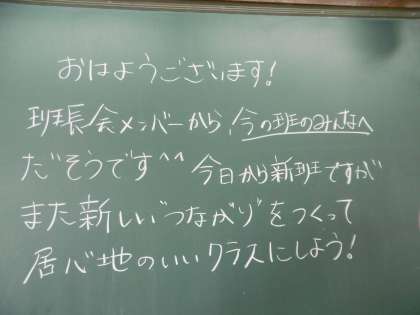 おはようございます!
班長会メンバーから、今の班のみんなへ
だそうです^^ 今日から新班ですが
また新しい"つながり"をつくって
居心地のいいクラスにしよう!